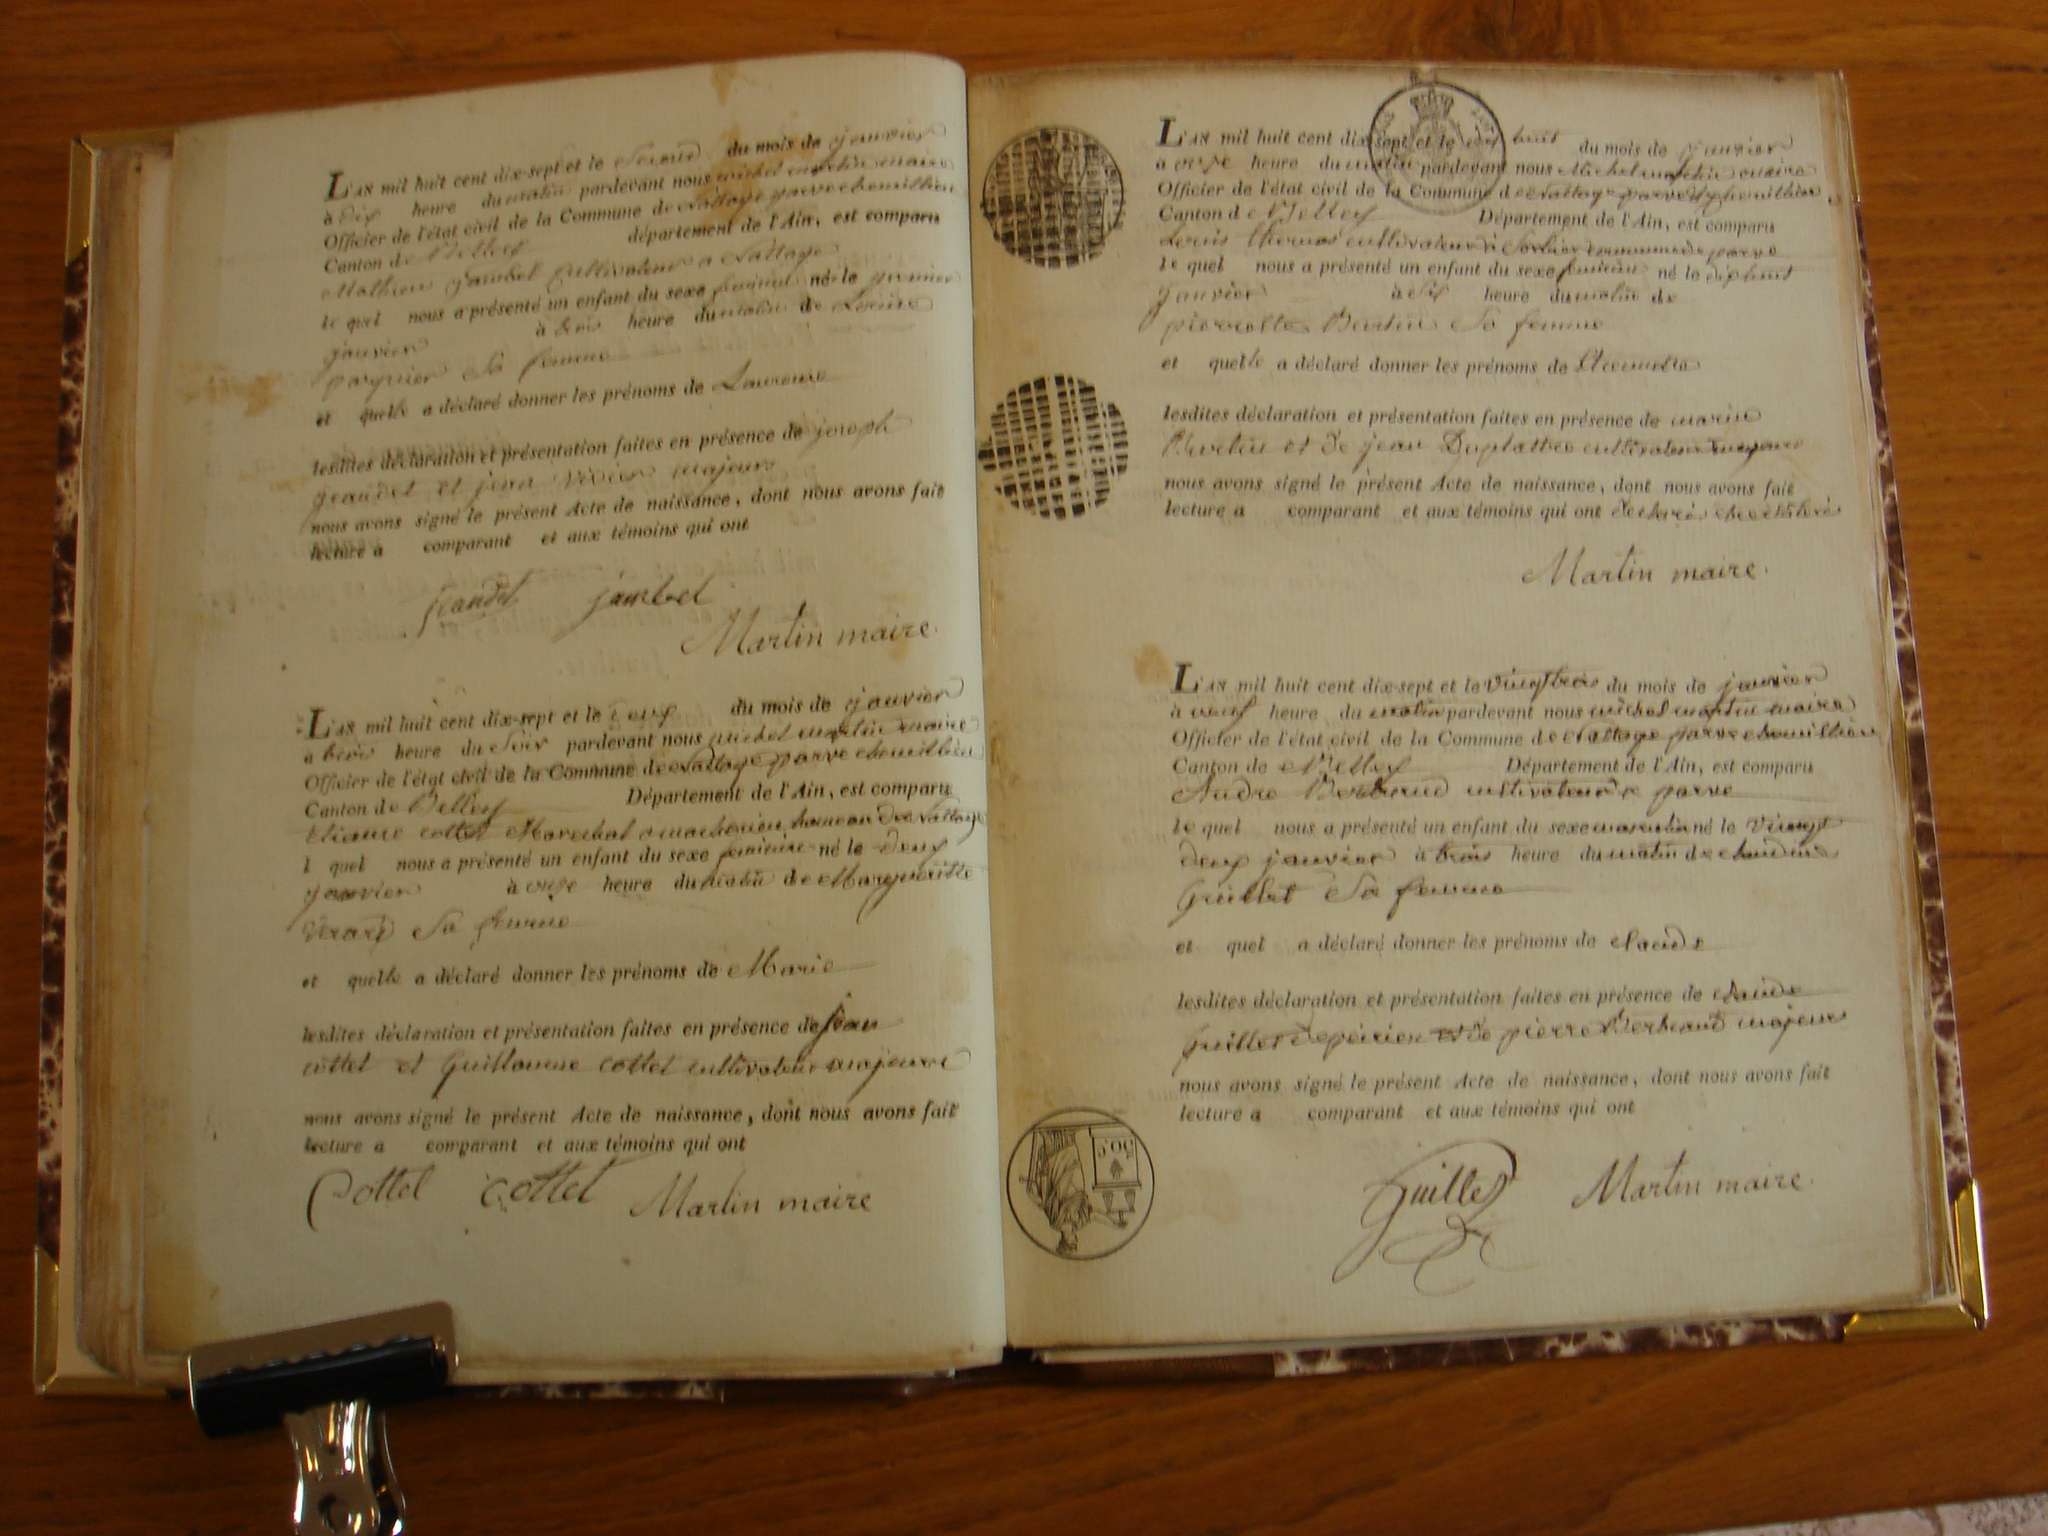 L'AN mil huit cent dix-sept et le Second du mois de janvier
à dix heure du matin pardevant nous michel martin maire
Officier de l'état civil de la Commune de Nattage parve chemillieu
Canton de Belley département de l'Ain, est comparu
Mathieu jambet Cultivateur a Nattage
le quel nous a présenté un enfant du sexe feminin né le premier
janvier à trois heure du matin de
sa femme
et quelle a déclaré donner les prénoms de Laurence
lesdites déclaration et présentation faites en présence de joseph
jeandet et jean majeurs
nous avons signé le présent Acte de naissance, dont nous avons fait
lecture a comparant et aux témoins qui ont
jeandet jambet
Martin maire.
L'AN mil huit cent dix-sept et le deux du mois de janvier
à trois heure du Soir pardevant nous michel martin maire
Officier de l'état civil de la Commune de Nattage parve chemillieu
Canton de Belley Département de l'Ain, est comparu
cottet Marechal a hameau de Nattage
l quel nous a présenté un enfant du sexe feminine né le deux
janvier à onze heure du matin de Margueritte
sa femme
et quelle a déclaré donner les prénoms de Marie
lesdites déclaration et présentation faites en présence de jean
cottet et Guillaume cottet cultivateur majeurs
nous avons signé le présent Acte de naissance, dont nous avons fait
lecture a comparant et aux témoins qui ont
Cottet cottet Martin maire
L'AN mil huit cent dix-sept et le dix huit du mois de janvier
à onze heure du matin pardevant nous Michel martin maire
Officier de l'état civil de la Commune de Nattage parve et chemillieu
Canton de Belley Département de l'Ain, est comparu
Louis cultivateur à Sorbier commune de parve
le quel nous a présenté un enfant du sexe feminin né le dix huit
janvier à six heure du matin de
pierrette Bertin sa femme
et quelle a déclaré donner les prénoms de
lesdites déclaration et présentation faites en présence de marin
et de jean Duplattre cultivateur majeurs
nous avons signé le présent Acte de naissance, dont nous avons fait
lecture a comparant et aux témoins qui ont declarés
Martin maire.
L'AN mil huit cent dix-sept et le vingt trois du mois de janvier
à neuf heure du matin pardevant nous michel martin maire
Officier de l'état civil de la Commune de Nattage parve chemillieu
Canton de Belley Département de l'Ain, est comparu
Andre Bertrand cultivateur a parve
le quel nous a présenté un enfant du sexe masculin né le vingt
deux janvier à trois heure du matin de claudine
Guillet sa femme
et quel a déclaré donner les prénoms de claude
lesdites déclaration et présentation faites en présence de claude
Guillet et de pierre Bertrand majeurs
nous avons signé le présent Acte de naissance, dont nous avons fait
lecture a comparant et aux témoins qui ont
Guillet Martin maire.
50 C